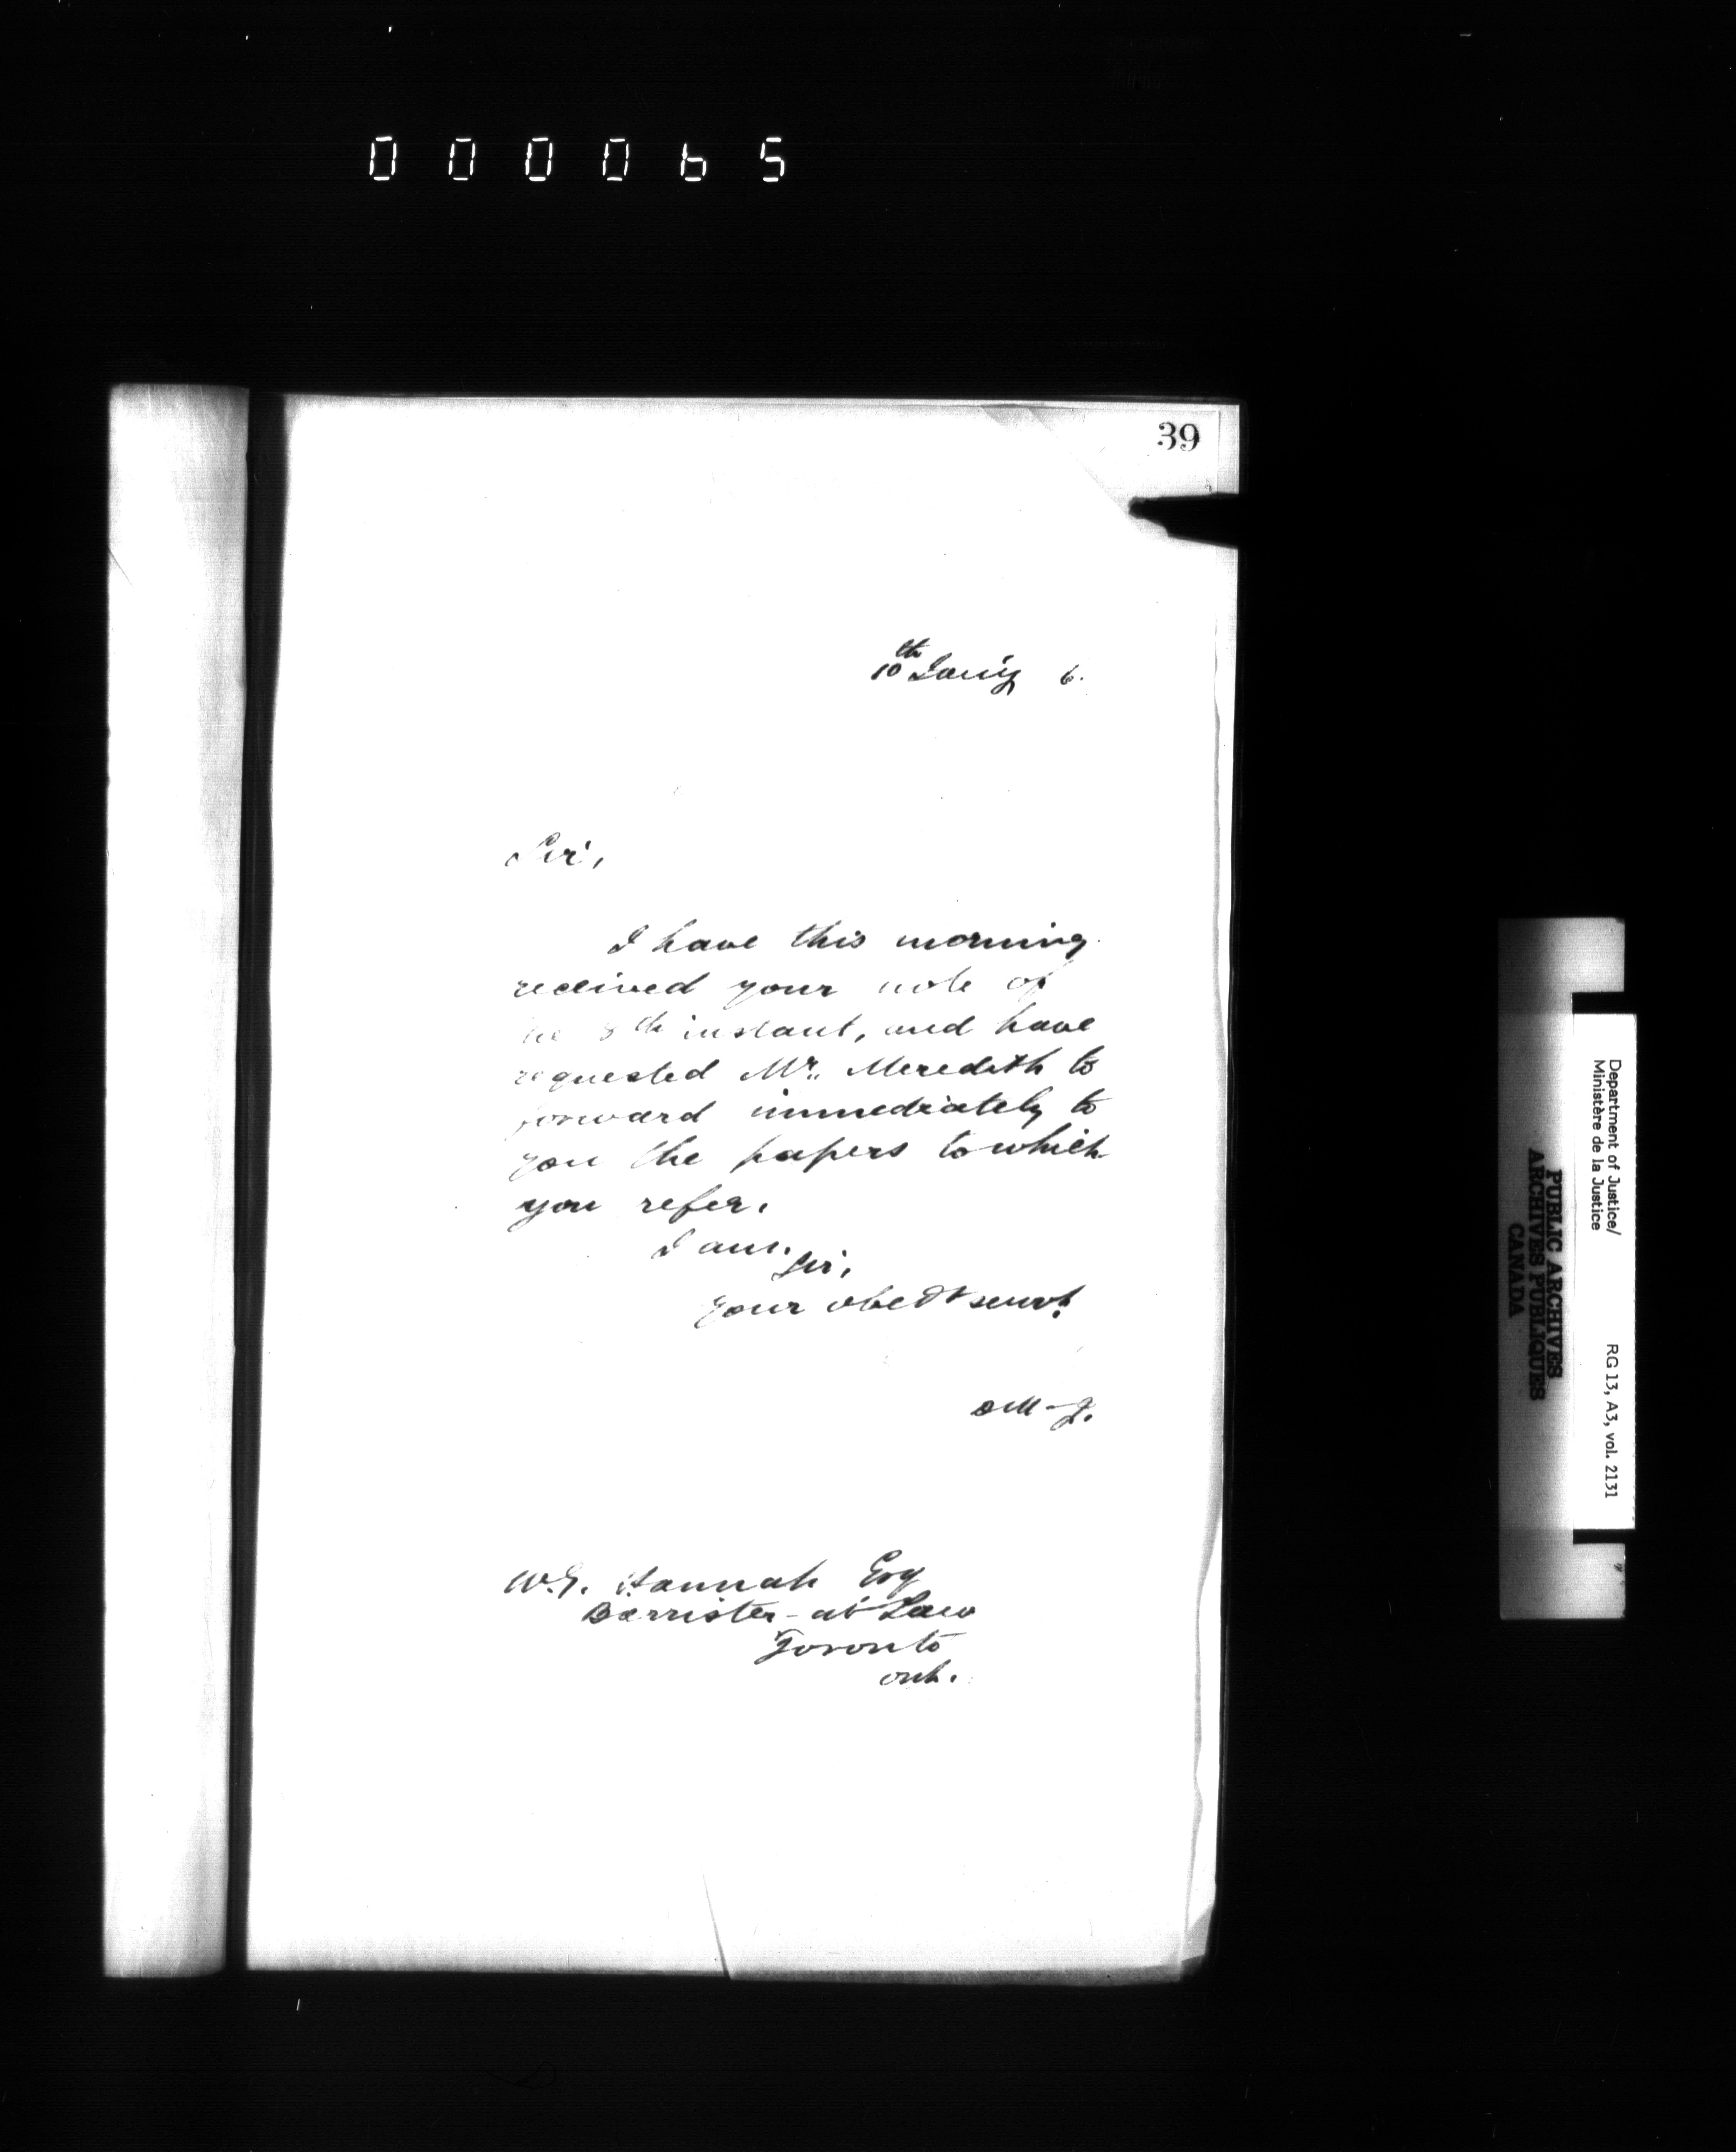 000065
39
10th Jan'y 6.
Sir,
I have this morning
received your note of
the 8th instant, and have
requested Mr. Meredith to
forward immediately to
you the papers to which
you refer.
I am,
Sir,
Your obedt servt.
Barrister-at-Law
W.G. Hannah Esq
Toronto
Ont.
Department of Justice/
Ministère de la Justice
RG 13, A3, vol. 2131
PUBLIC ARCHIVES
ARCHIVES PUBLIQUES
CANADA